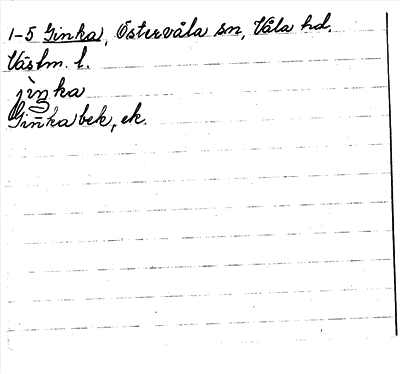 1-5 Ginka, Östervåla sn, Våla hd,
Västm. l.
jìŋka
Ginka bek, ek.